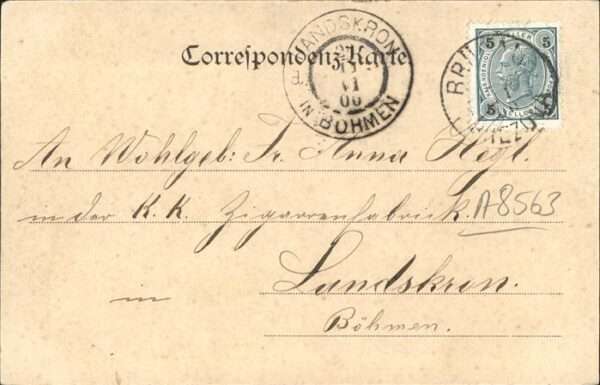 Correspondenz-Karte.
LANDSKRON
IN BÖHMEN
00
5 5
5
An Wohlgeb: Fr. Anna
in der K. K. Zigarrenfabrick.
A8563
in Landskron.
Böhmen.